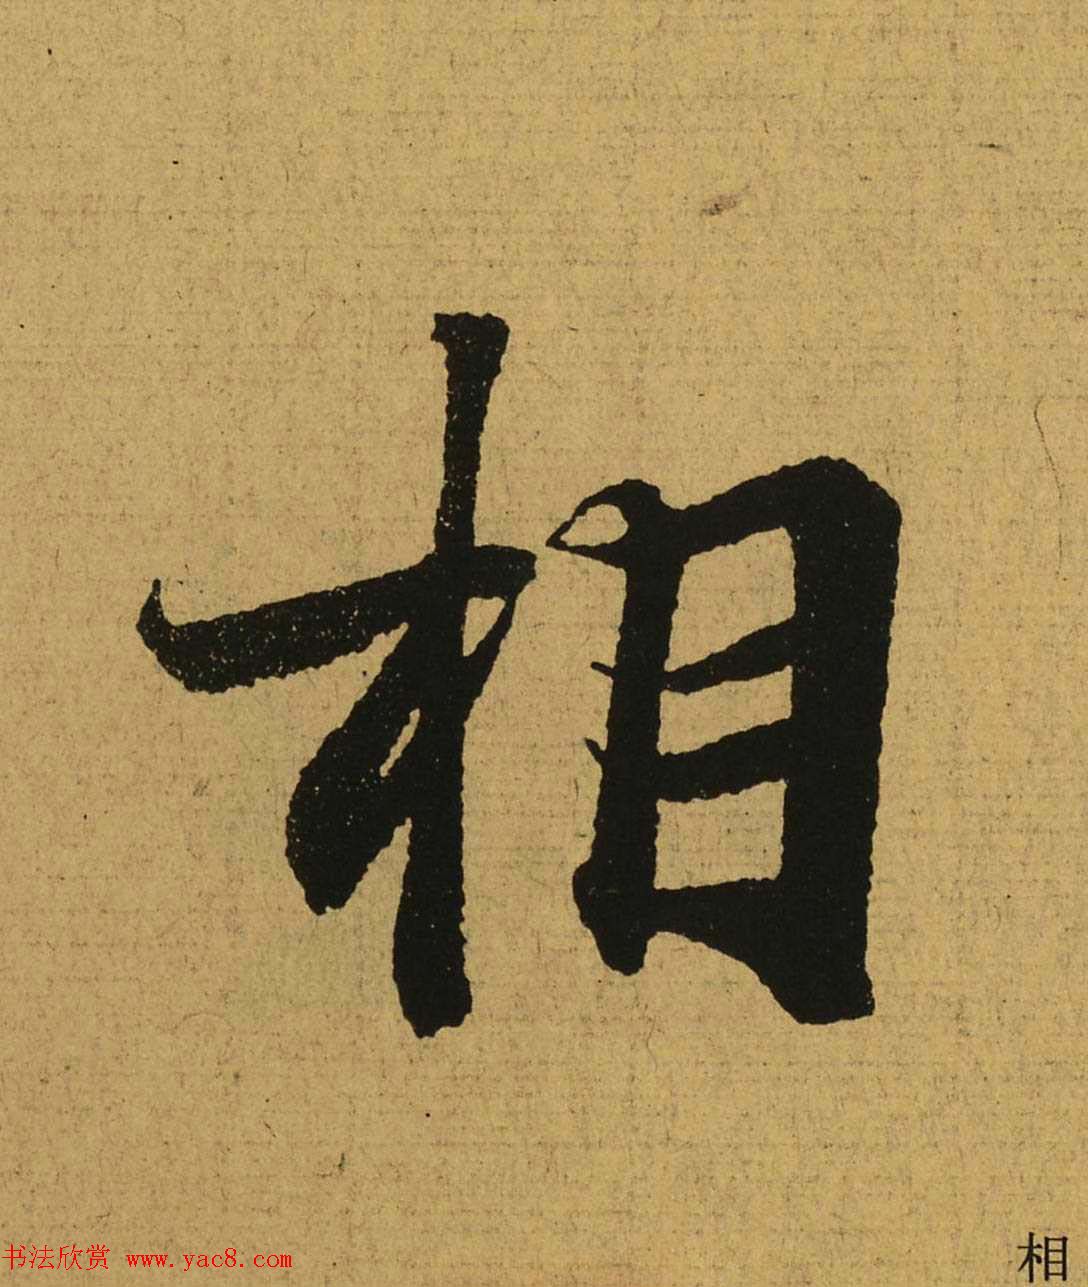 相
书法欣赏 www.yac8.com
相